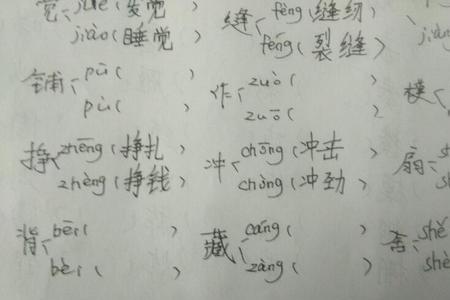 觉 jué (发觉
jiào (睡觉 )
缝 féng (缝纫
fèng (裂缝 )
铺 pū ( )
pù ( )
作 zuò ( )
zuō ( )
模
挣 zhēng (挣扎 )
zhèng (挣钱 )
冲 chōng (冲击 )
chòng (冲劲 )
扇 sh
sh
背 bēi ( )
bèi ( )
藏 cáng ( )
zàng ( )
舍 shě
shè